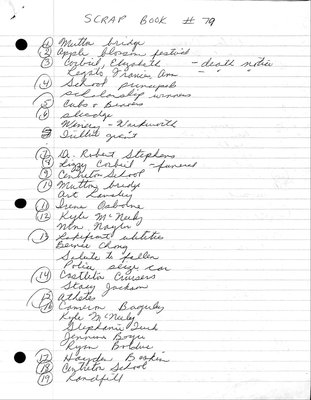 SCRAP BOOK # 79
1 Mutton bridge
2 Apple blossom festival
3 Corbiel, Elizabeth - death notice
Frances Ann " "
4 School principals
scholarship winners
5 Cubs & Beavers
6 sludge
Warkworth
Trillium grant
7 Dr. Robert Stephens
8 Lizzy Corbiel - funeral
9 Centreton School
10 Mutton bridge
Art
11 Irene Osborne
12 Kyle McNeely
Naylor
13 Lakefront utilities
Bernie Chong
Salute to fallen
Police seize car
14 Castleton Cruisers
Stacy Jackson
15 Athlete
16 Cameron Baguley
Kyle McNeely
Stephanie
Jennina
Ryan
17 Hayden
18 Centreton School
19 Landfill